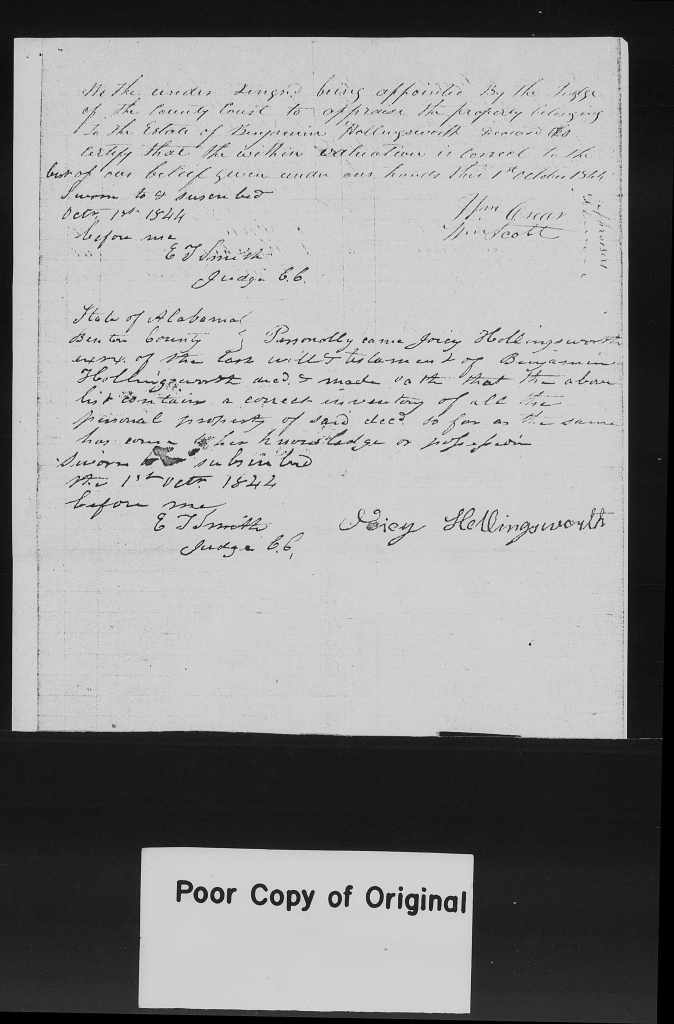 We the under singnd being appointed By the Judge
of the County Court to appraise the property belonging
To the Estate of Benjamin Hollingsworth Deceased do
certify that the within valuation is correct to the
best of our belief given under our hands this 1st October 1844
Sworn to & suscribed
Octr 1st 1844
before me
E T Smith
Judge C.C.
Wm
Wm Scott
Appraisers
State of Alabama
Benton County } Personally came Joicy Hollingsworth
exrx. of the last will & testament of Benjamin
Hollingsworth decd. & made oath that the above
list contains a correct inventory of all the
personal property of said decd. so far as the same
has come to her knowledge or possession
Sworn to subscribed
the 1st Octr 1844
before me
E T Smith
Judge C.C.
Joicy Hollingsworth
Poor Copy of Original